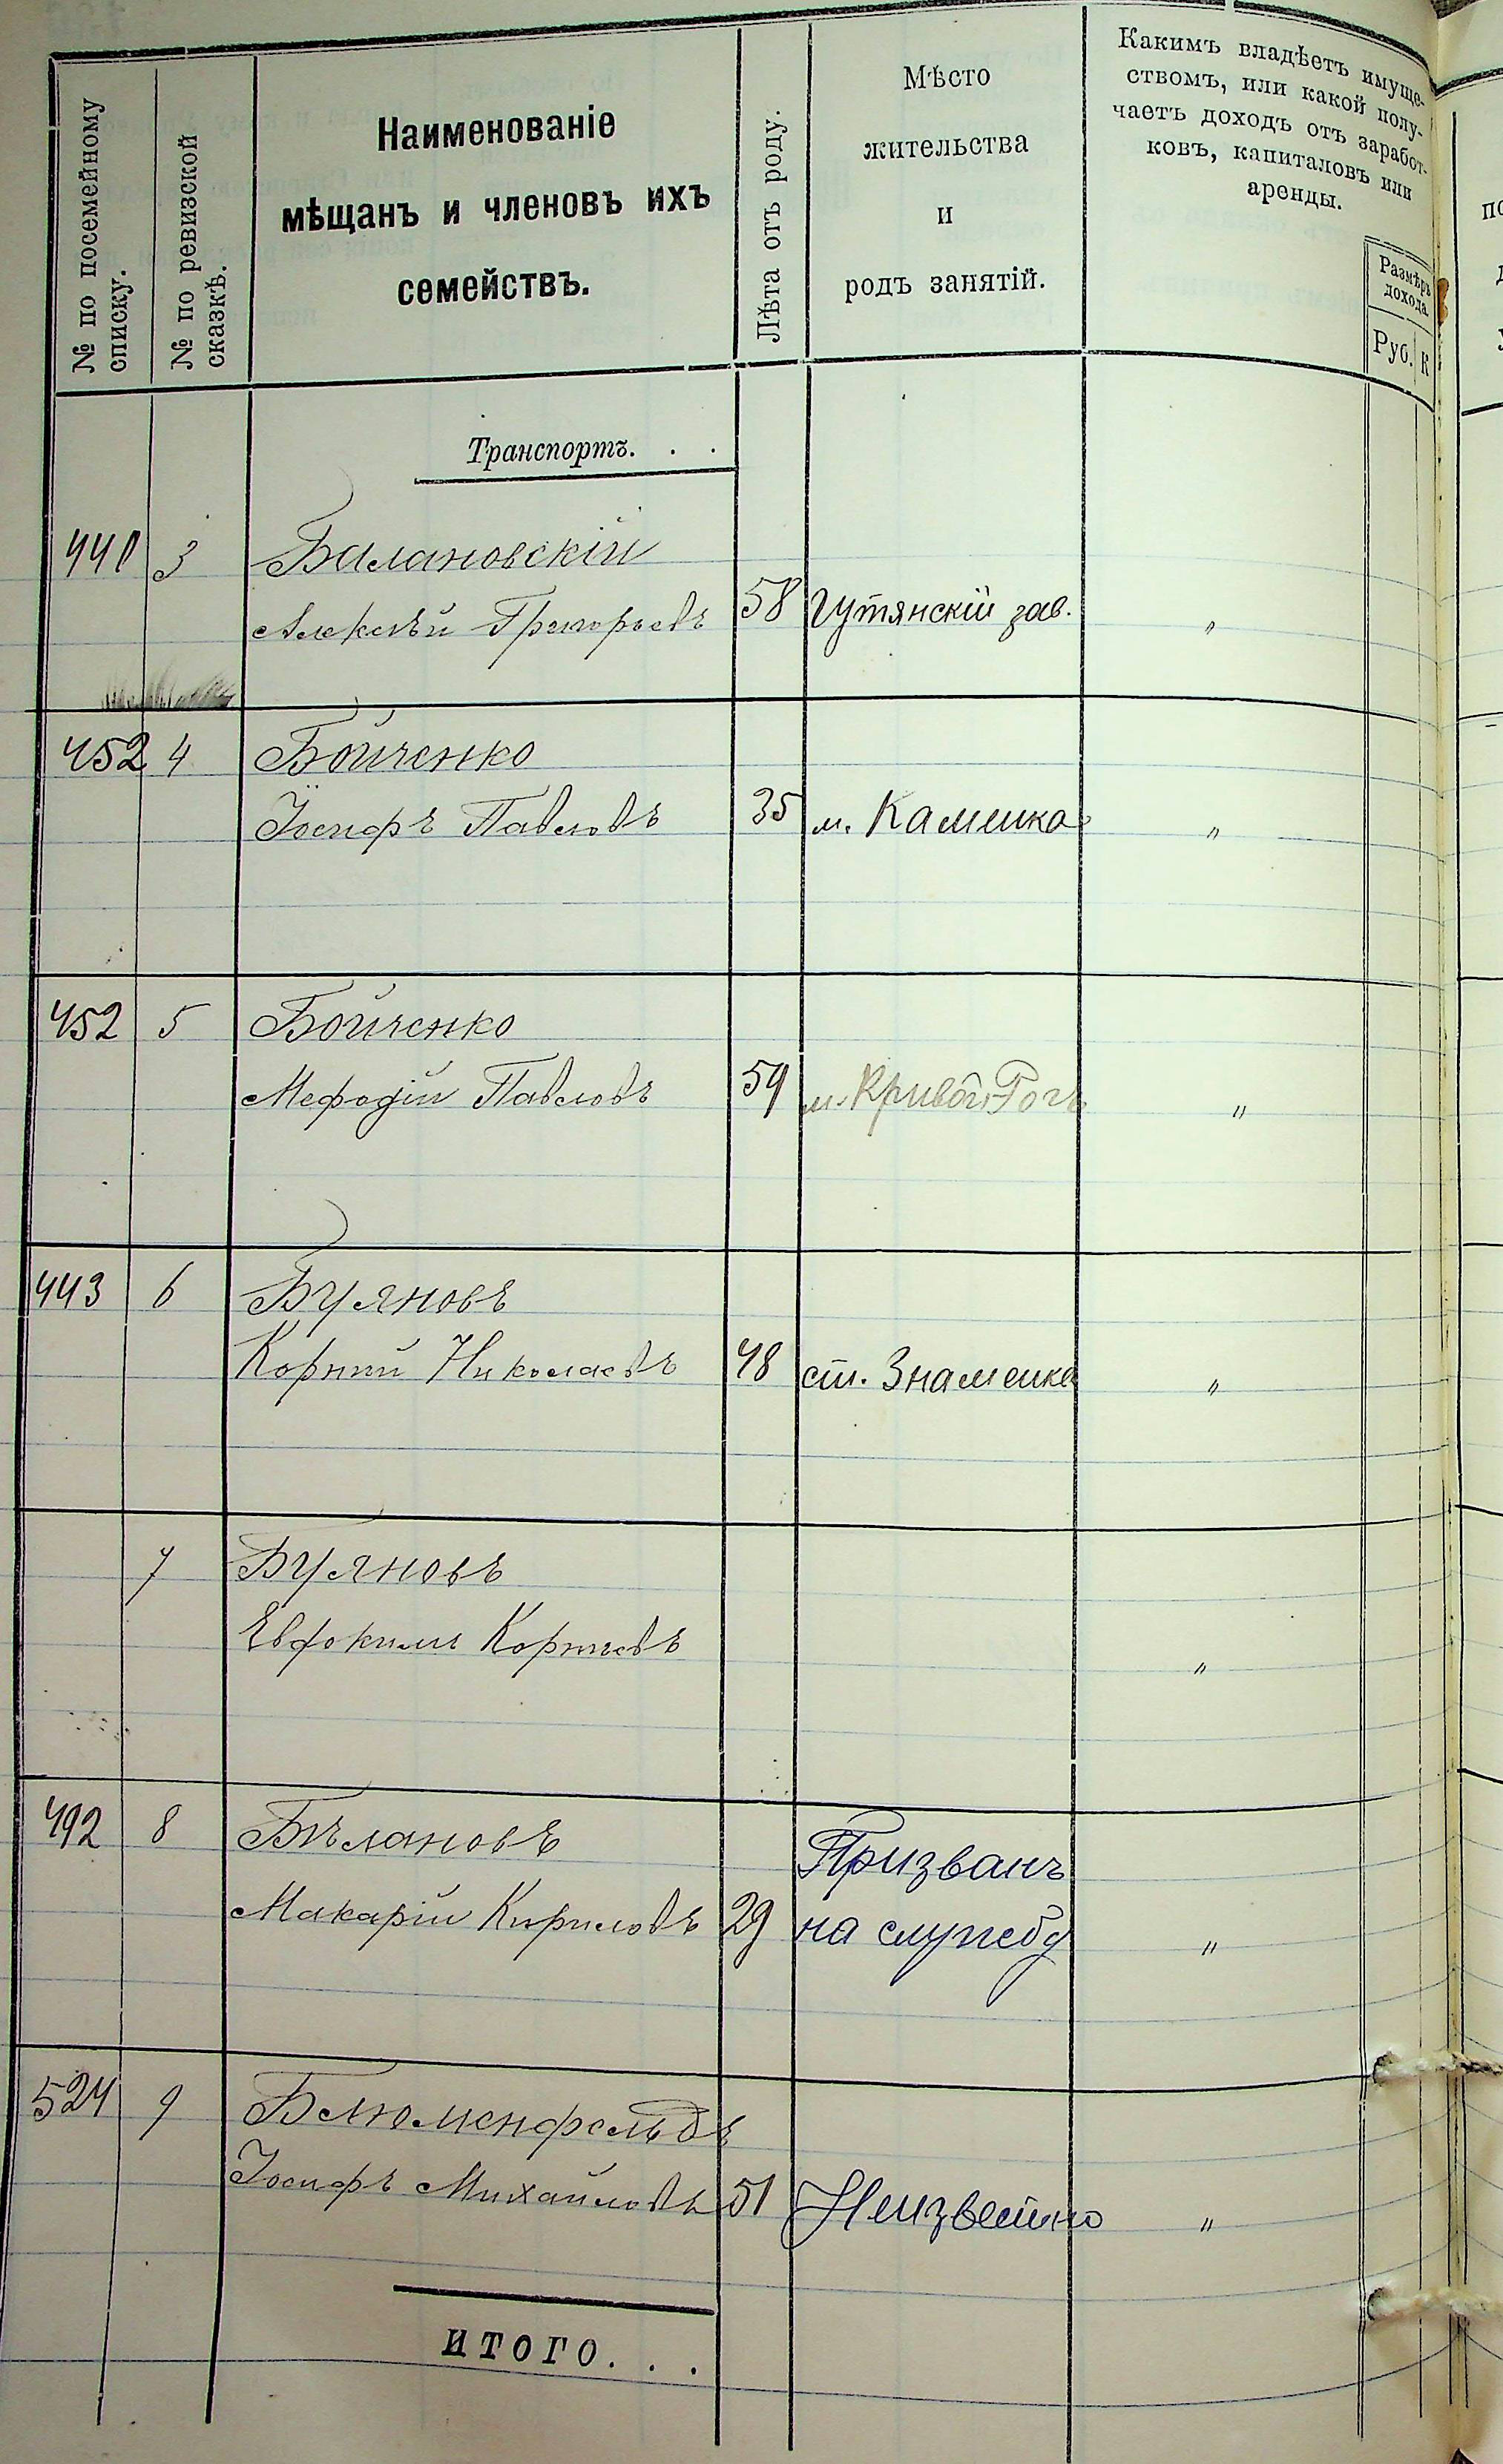 № по посемейному
списку.
№ по ревизской
сказкѣ.
Наименованіе
мѣщанъ и членовъ ихъ
семействъ.
Лѣта отъ роду.
Мѣсто
жительства
и
родъ занятій.
Какимъ владѣетъ имуще-
ствомъ, или какой полу-
чаетъ доходъ отъ заработ-
ковъ, капиталовъ или
аренды.
Размѣръ
дохода.
Руб. К
Транспортъ. . .
441 3 Балановскій
Алексѣй Григорьевъ 58 Гутянскій зав. "
452 4 Бойченко
Іосифъ Павловъ 35 м. Каменка "
452 5 Бойченко
Мефодій Павловъ 59 м. Кривой Рогъ "
443 6 Буяновъ
Корній Николаевъ 48 ст. Знаменка "
7 Буяновъ
Евдокимъ Корніевъ "
492 8 Бѣлановъ Призванъ
Макарій Кириловъ 29 на службу "
524 9 Блюменфельдъ
Іосифъ Михайловъ 51 Неизвестно "
ИТОГО. . .